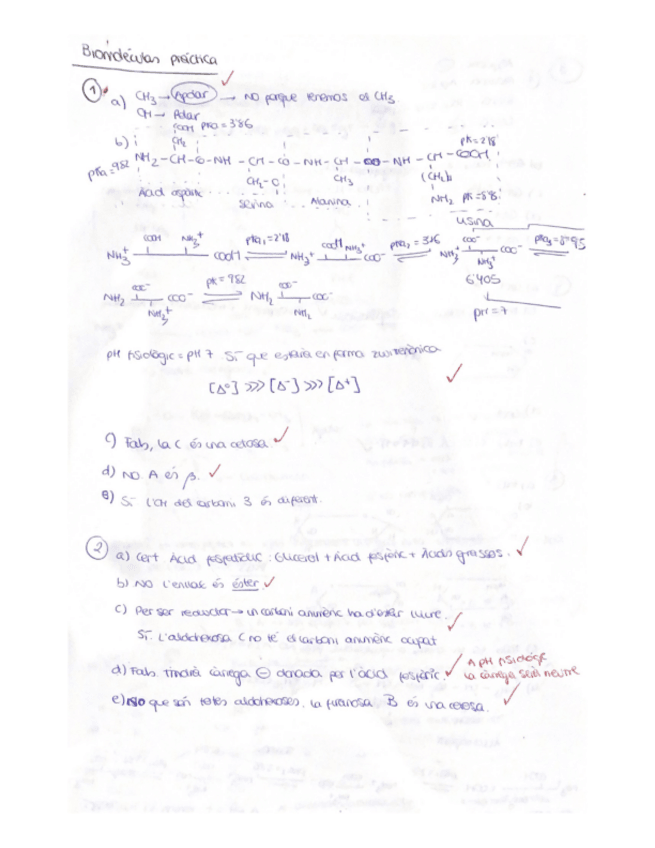 Biomolècules pràctica
1 a) CH3 → Apolar → NO perque tenemos el CH3
OH → Polar
COOH pKa = 3'86
b) CH2 pK = 2'18
pKa = 9'82 NH2 - CH - CO - NH - CH - CO - NH - CH - CO - NH - CH - COOH
CH2-O CH3 (CH2)
Àcid aspàrtic NH2 pK = 8'95
Serina Alanina
Lisina
COOH NH3+ pKa1 = 2'18 COOH NH3+ pKa2 = 3'86 COO- pKa3 = 8'95
NH3+ COOH NH3+ COO- NH3+ COO-
NH3+
COO- pK = 9'82 COO- 6'405
NH2 COO- NH2 COO-
NH3+ NH2 pH = 7
pH fisiològic = pH 7 Sí que estaria en forma zwitteriònica
[A°] >>> [A-] >>> [A+]
c) Fals, la C és una cetosa.
d) NO. A és β.
e) Sí L'OH del carboni 3 és diferent.
2 a) Cert Àcid fosfatídic: Glicerol + Àcid fosfòric + Àcids grassos.
b) NO l'enllaç és éster
c) Per ser reductor → un carboni anomèric ha d'estar lliure.
Sí. L'aldohexosa C no té el carboni anomèric ocupat
d) Fals. Tindrà càrrega ⊖ donada per l'àcid fosfòric. A pH fisiològic
la càrrega serà neutre
e) NO que són totes aldohexoses, la furanosa B és una cetosa.